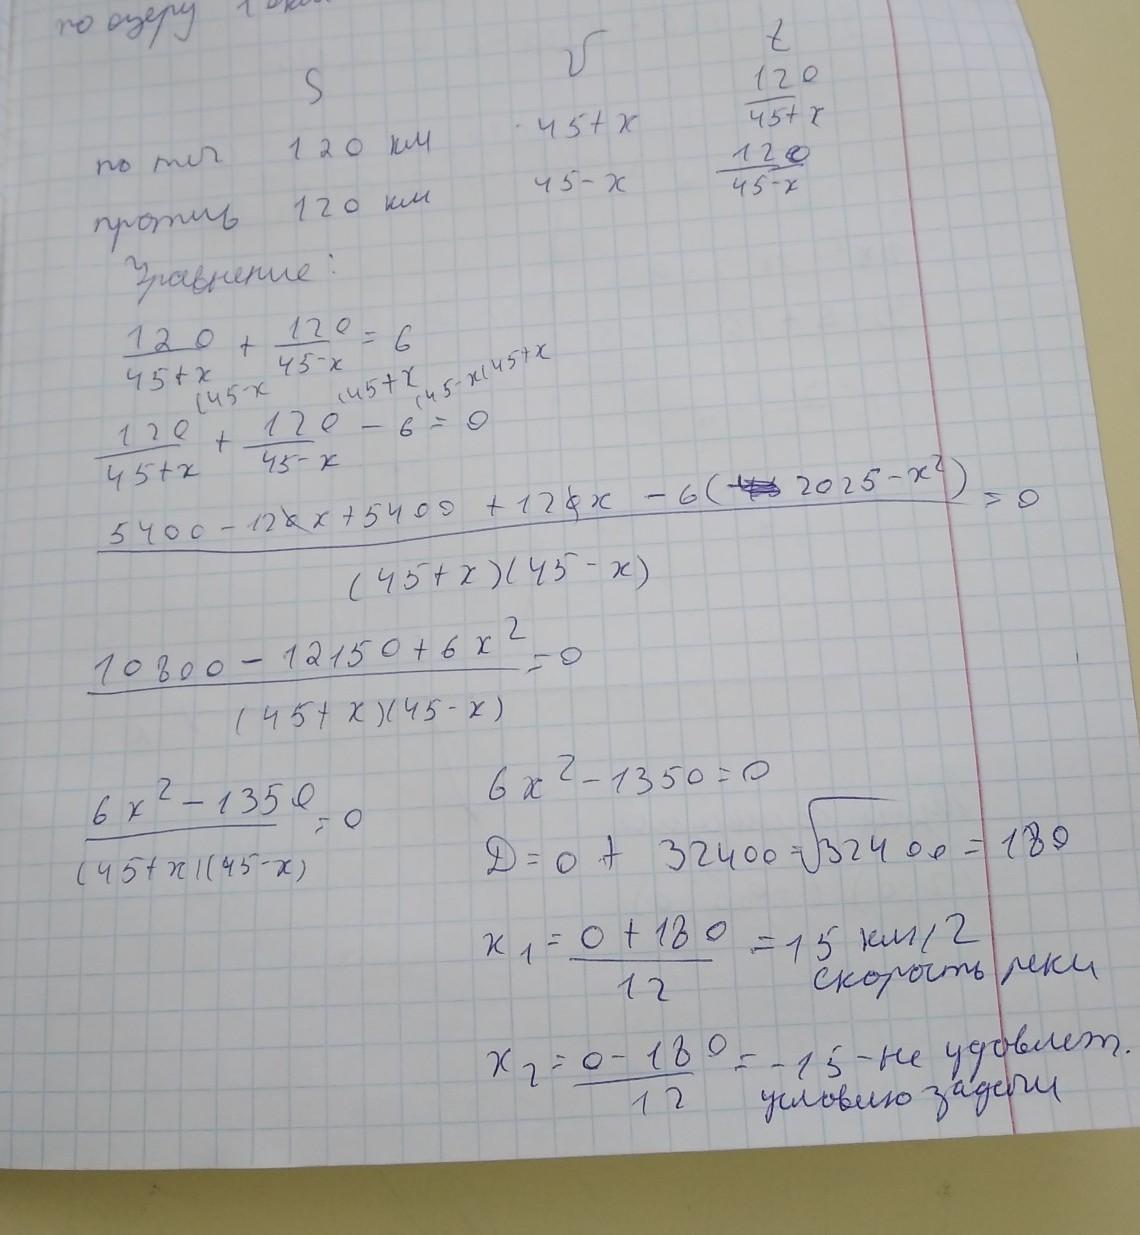 по озеру 1
S V t
по теч 120 км 45+x 120/45+x
против 120 км 45-x 120/45-x
Уравнение:
120/45+x + 120/45-x = 6
(45-x (45+x (45-x)(45+x
120/45+x + 120/45-x - 6 = 0
5400-120x+5400+120x-6(2025-x²)/(45+x)(45-x) = 0
10800-12150+6x²/(45+x)(45-x) = 0
6x²-1350/(45+x)(45-x) = 0
6x²-1350=0
D=0+32400=√32400=180
x₁=0+180/12=15 км/2
скорость реки
x₂=0-180/12=-15-не удовлет.
условию задачи